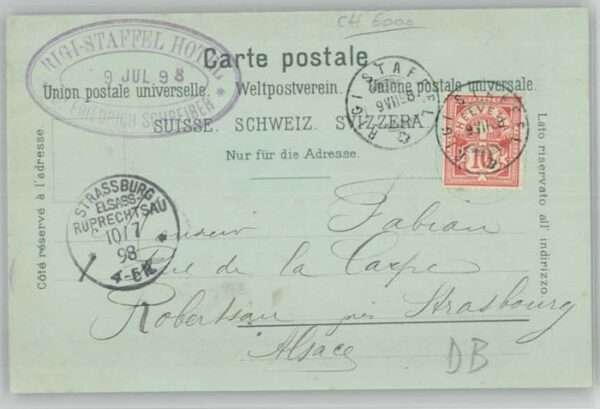 CH 6000
RIGI-STAFFEL HOTEL
9 JUL. 98
FRIEDRICH SCHREIBER
Carte postale
Union postale universelle. Weltpostverein. Unione postale universale.
SUISSE. SCHWEIZ. SVIZZERA
Nur für die Adresse.
RIGISTAFFEL
9 VII 98
HELVETIA
10
Côté réservé à l'adresse
Lato riservato all' indirizzo
STRASSBURG
ELSASS-
RUPRECHTSAU
10/7
98
4-5 N.
Monsieur Fabian
Rue de la Carpe
Robertsau près Strasbourg
Alsace
DB